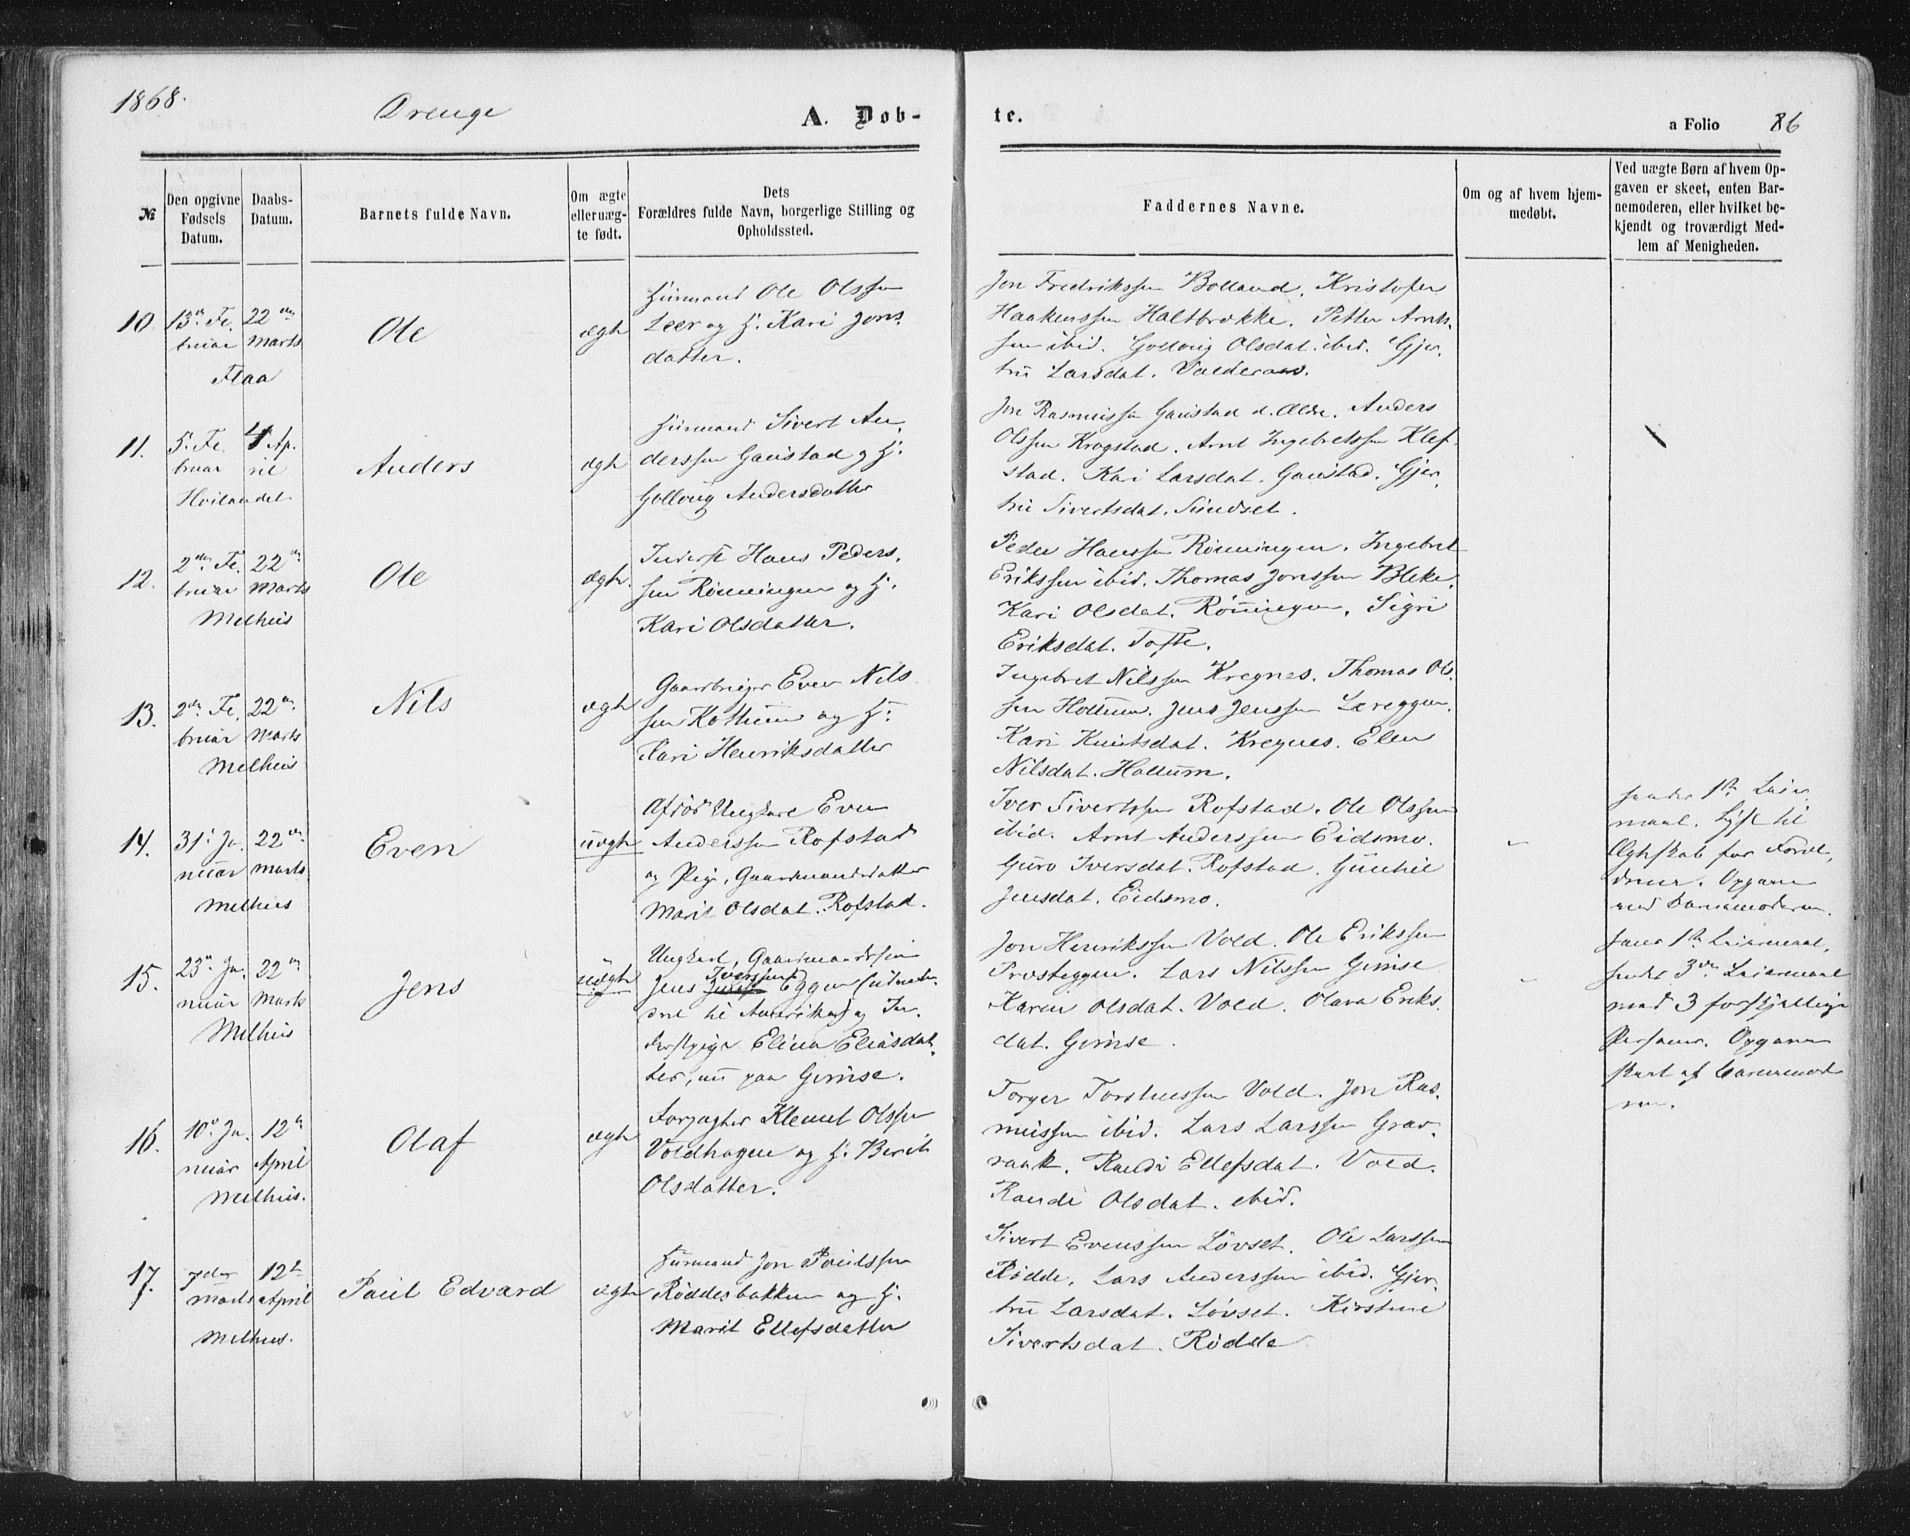 1868.
Drenge
A. Dob-
te.
a Folio 86
№
Den opgivne Fødsels Datum.
Daabs-Datum.
Barnets fulde Navn.
Om ægte eller uæg-te født.
Dets Forældres fulde Navn, borgerlige Stilling og Opholdssted.
Faddernes Navne.
Om og af hvem hjem-medøbt.
Ved uægte Børn af hvem Op-gaven er skeet, enten Bar-nemoderen, eller hvilket be-kjendt og troværdigt Med-lem af Menigheden.
10. 13de Fe- 22de
bruar Marts
Flaa
Ole
ægte
Huusmand Ole Olssen
Leer og H. Kari Jons
datter.
Jon Fredrikssen Bolland. Kristofer
Haakenssen Haltbrække. Petter Arnt-
sen ibid. Gollaug Olsdat. ibid. Gjer-
tru Larsdat. Valderaas.
11. 5. Fe- 4. Ap-
bruar ril
Høilandet
Anders
ægte
Huusmand Sivert An-
derssen Gaustad og H.
Gollaug Andersdatter
Jon Rasmussen Gaustad d. Ældre. Anders
Olssen Krogstad. Arnt Ingebretssen Klef-
stad. Kari Larsdat. Gaustad. Gjer-
tru Sivertsdat. Sundset.
12. 2den Fe- 22de
bruar Marts
Melhus
Ole
ægte.
Inderst Hans Peders-
sen Rønningen og H.
Kari Olsdatter.
Peder Hanssen Rønningen. Ingebret
Erikssen ibid. Thomas Jonssen Bleke.
Kari Olsdat. Rønningen. Sigri
Eriksdat. Tofte.
13. 2den Fe- 22de
bruar Marts
Melhus
Nils
ægte
Gaardbruger Even Nils
sen Hollum og H.
Kari Henriksdatter
Ingebret Nilssen Kregnes. Thomas Ols-
sen Hollum. Jens Jenssen Løreggen.
Kari Knutsdat. Kregnes. Elen
Nilsdat. Hollum.
14. 31. Ja- 22de
nuar Marts
Melhus
Even
uægte
Afdød Ungkarl Even
Anderssen Rofstad
og Pige, Gaardmandsdatter
Marit Olsdat. Rofstad.
Iver Sivertssen Rofstad. Ole Olssen
ibid. Arnt Anderssen Eidsmo.
Guro Iversdat. Rofstad. Gunhil
Jensdat. Eidsmo.
1te Leier
maal. Lyst til
Ægteskab for Foræl-
drene. Opgave
ved Barnemoderen.
15. 23de Ja- 22de
nuar Marts
Melhus
Jens
uægte
Ungkarl, Gaardmandssøn
Jens Iverssen Eggen (udvan-
dret til Amerika) og In-
derstpige Elina Eliasdat-
ter, nu paa Gimse.
Jon Henrikssen Vold. Ole Erikssen
Trosteggen. Lars Nilssen Gimse
Karen Olsdat. Vold. Olava Eriks
dat. Gimse.
hans 1te Leiermaal,
hendes 3die Leiermaal
med 3 forskjellige
Personer. Opgaven
skeet af Barnemod
ren.
16. 10de Ja- 12te
nuar April
Melhus.
Olaf
ægte
Forpagter Klemet Olssen
Voldhagen og H. Berit
Olsdatter.
Torger Torstenssen Vold. Jon Ras-
mussen ibid. Lars Larssen Grav-
raak. Randi Ellefsdat. Vold.
Randi Olsdat. ibid.
17. 7de 12te
Marts April
Melhus.
Paul Edvard
ægte
Huusmand Jon Paulssen
Røddesbakken og H.
Marit Ellefsdatter
Sivert Evenssen Løvset. Ole Larssen
Rødde. Lars Anderssen ibid. Gjer-
tru Larsdat. Løvset. Kirstine
Sivertsdat. Rødde